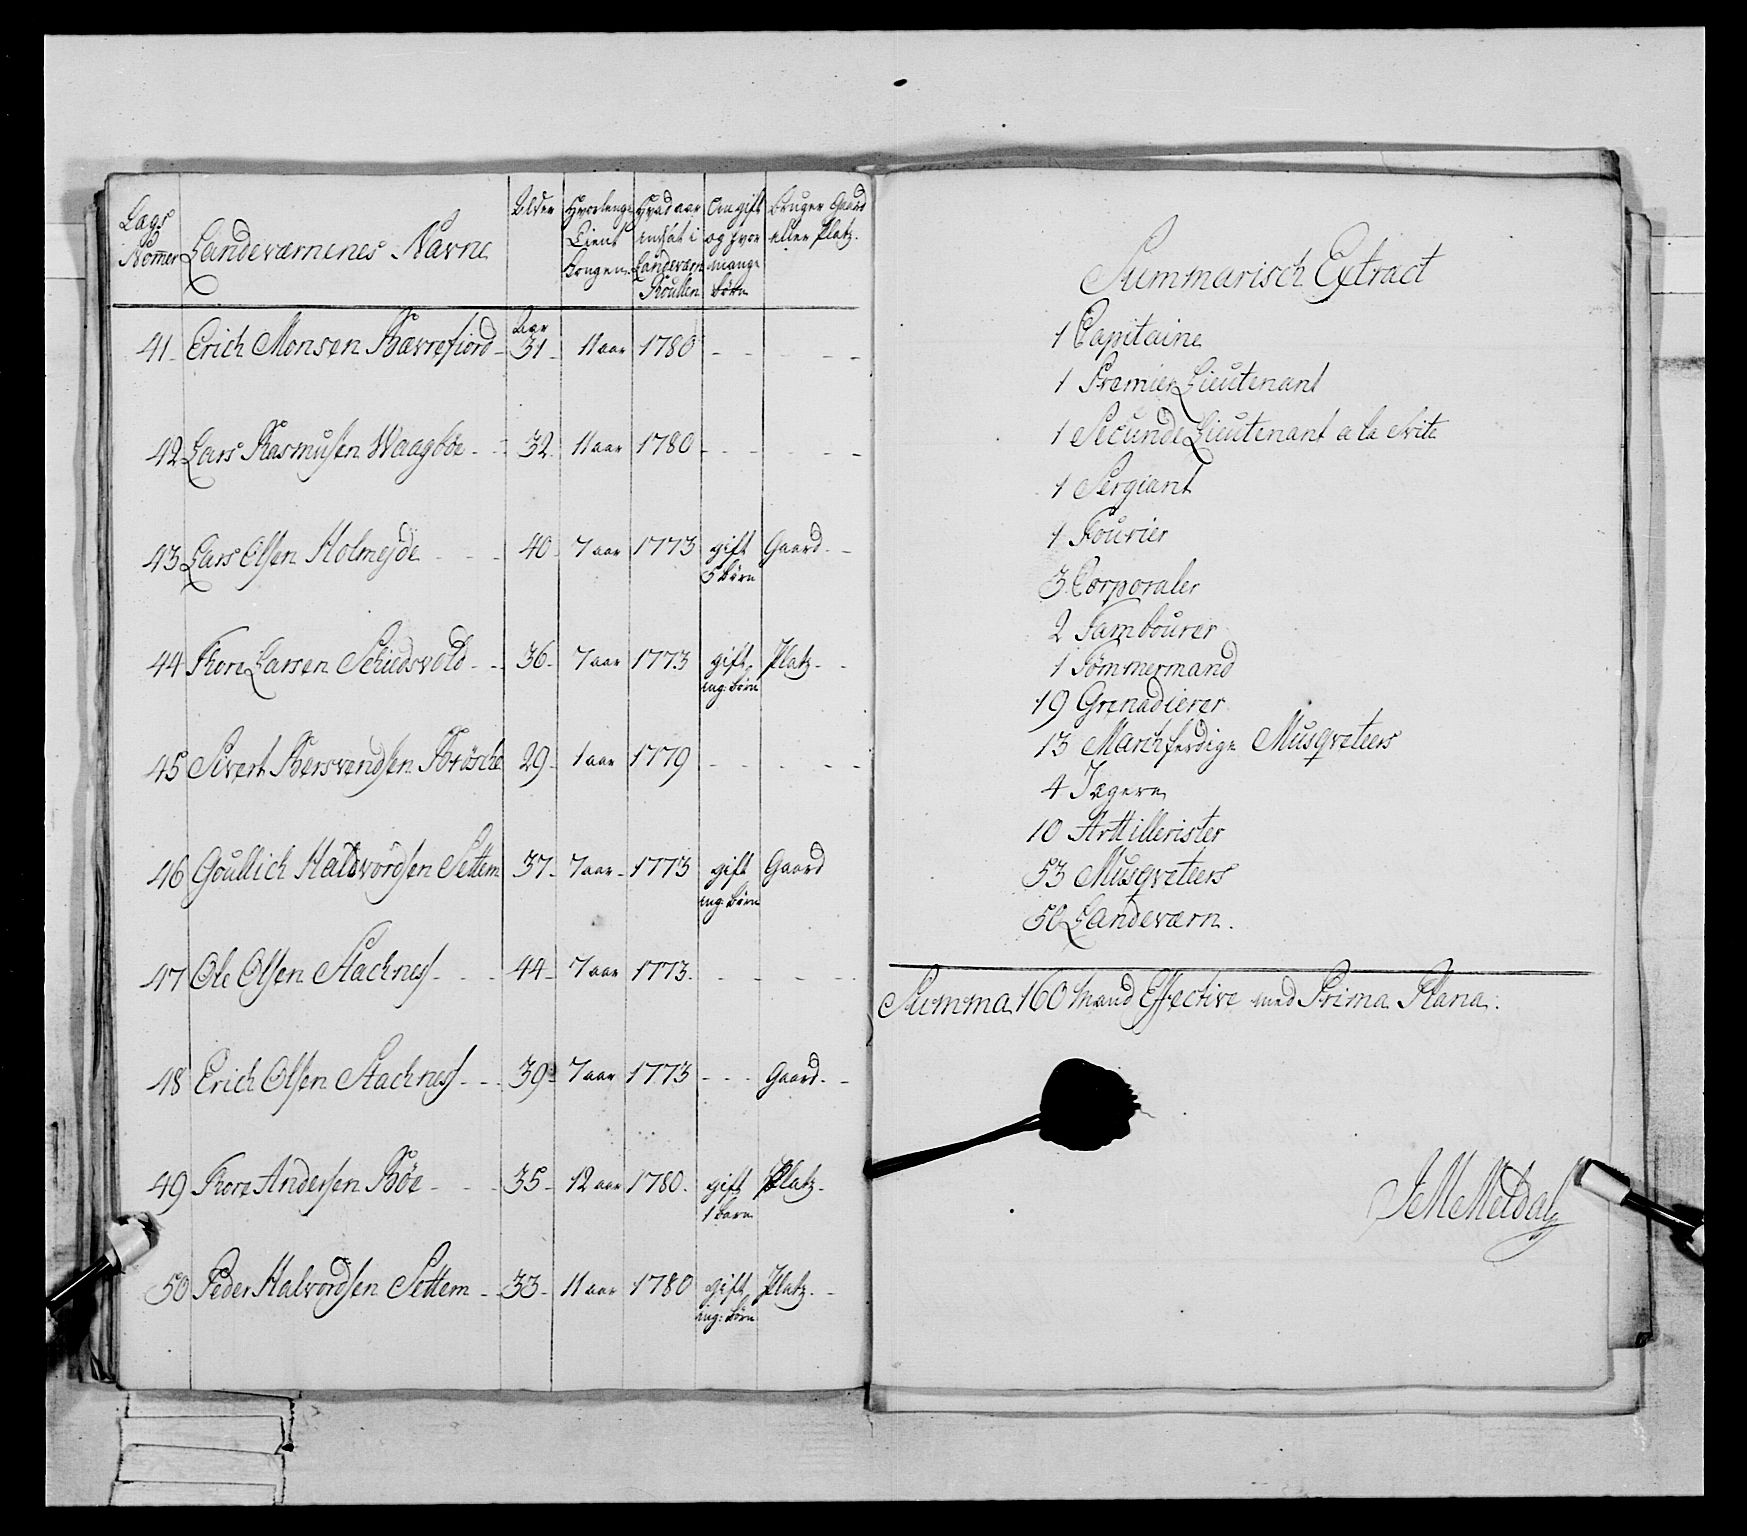 Lægs Nomer | Landeværnenes Navne | Alder | Hvorlenge Tient Kongen | Hvad aar indsat i Landeværn Roullen | Om gift og hvor mange børn | Bruger Gaard eller Platz.
41 Erich Monsen Bævrefiord - Aar 31 - 11 aar 1780 - - - - -
42 Lars Rasmusen Waagbøe - - 32 11 aar 1780 - - - - - -
43 Lars Olsen Holmejde - - - 40 7 aar 1773 gift 5 børn Gaard - -
44 Thore Larsen Schiedsvold - - 36 - 7 aar 1773 gift ing: børn Platz - -
45 Sivert Bersvendsen Brøsche 29 - 1 aar 1779 - - - - - -
46 Goullich Halvordsen Settem 37 - 7 aar - 1773 gift ing: børn Gaard
47 Ole Olsen Stachness - - - 44 - 7 aar 1773 - - - - -
48 Erich Olsen Stachness - - - 39 - 7 aar 1773 - - - Gaard - -
49 Thore Andersen Bøe - - - 35 - 12 aar 1780 - gift 1 barn Platz -
50 Peder Halvordsen Settem - 33 - 11 aar 1780 gift ing: børn Platz - -
Summarisch Extract
1 Capitaine
1 Premier Lieutenant
1 Secunde Lieutenant a la svite
1 Sergiant
1 Fourier
3 Corporaler
2 Tambourer
1 Tømmermand
19 Grenadierer
13 Marchferdige Musqveteers
4 Jægere
10 Arttillerister
53 Musqveteers
50 Landeværn.
Summa 160 Mand Effective med Prima Plana.